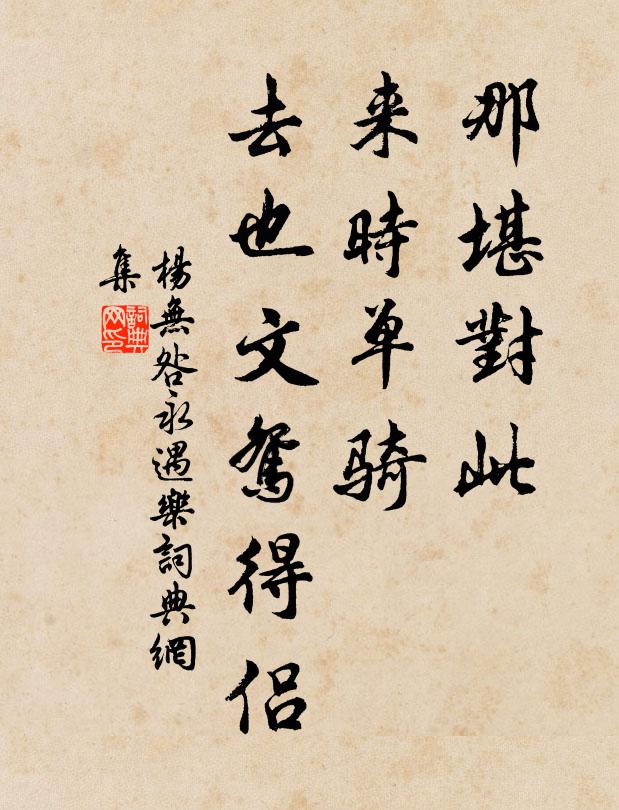 那堪對此
来時单騎
去也文鴛得侣
楊無咎永遇樂詞典網
集
詞典
网印